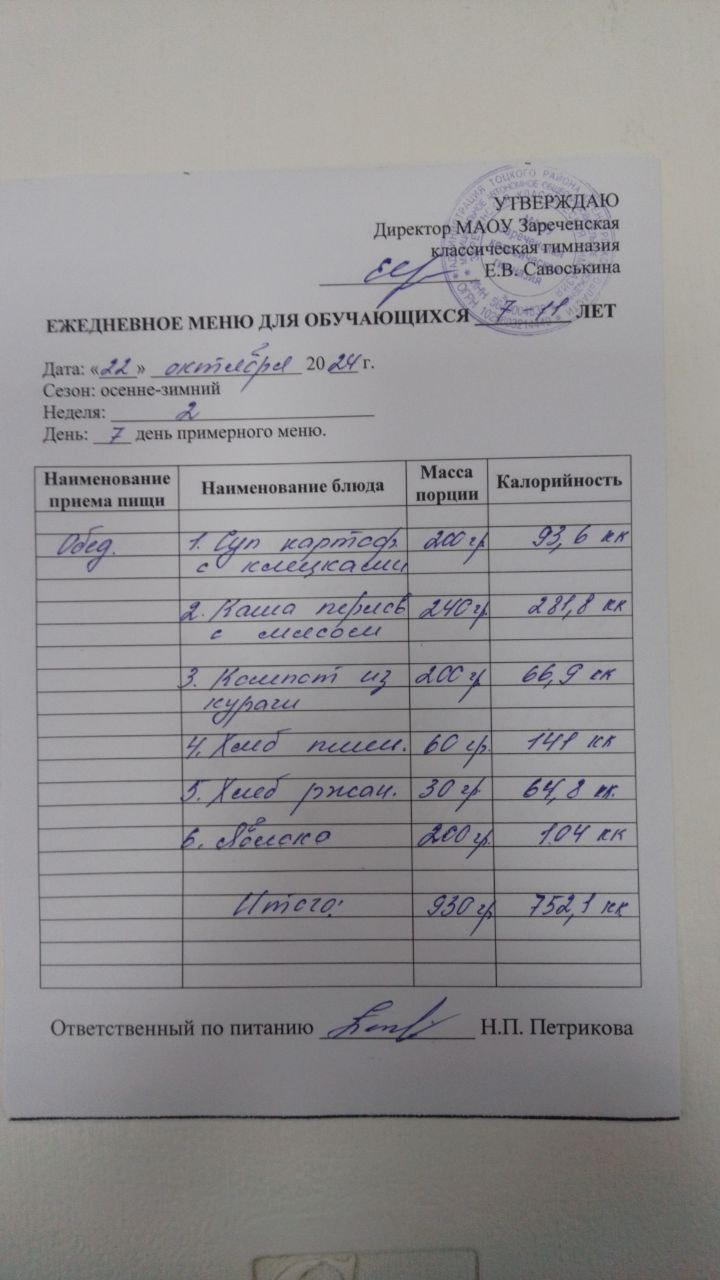 УТВЕРЖДАЮ
Директор МАОУ Зареченская
классическая гимназия
Е.В. Савоськина
ЕЖЕДНЕВНОЕ МЕНЮ ДЛЯ ОБУЧАЮЩИХСЯ 7 11 ЛЕТ
Дата: «22» октября 2024 г.
Сезон: осенне-зимний
Неделя: 2
День: 7 день примерного меню.
Наименование приема пищи Наименование блюда Масса порции Калорийность
Обед. 1. Суп картоф. 200 гр 93,6 кк
с клецками
2. Каша перлов 240 гр 281,8 кк
с мясом
3. Компот из 200 гр 66,9 кк
кураги
4. Хлеб пшен. 60 гр. 141 кк
5. Хлеб ржан. 30 гр. 64,8 кк.
6. Яблоко 200 гр. 104 кк
Итого: 930 гр 752,1 кк
Ответственный по питанию Н.П. Петрикова